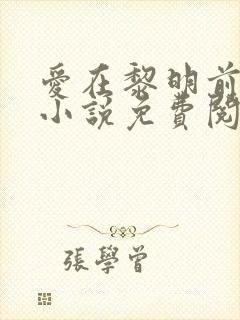 愛在黎明前
小説免費閱
張學曾